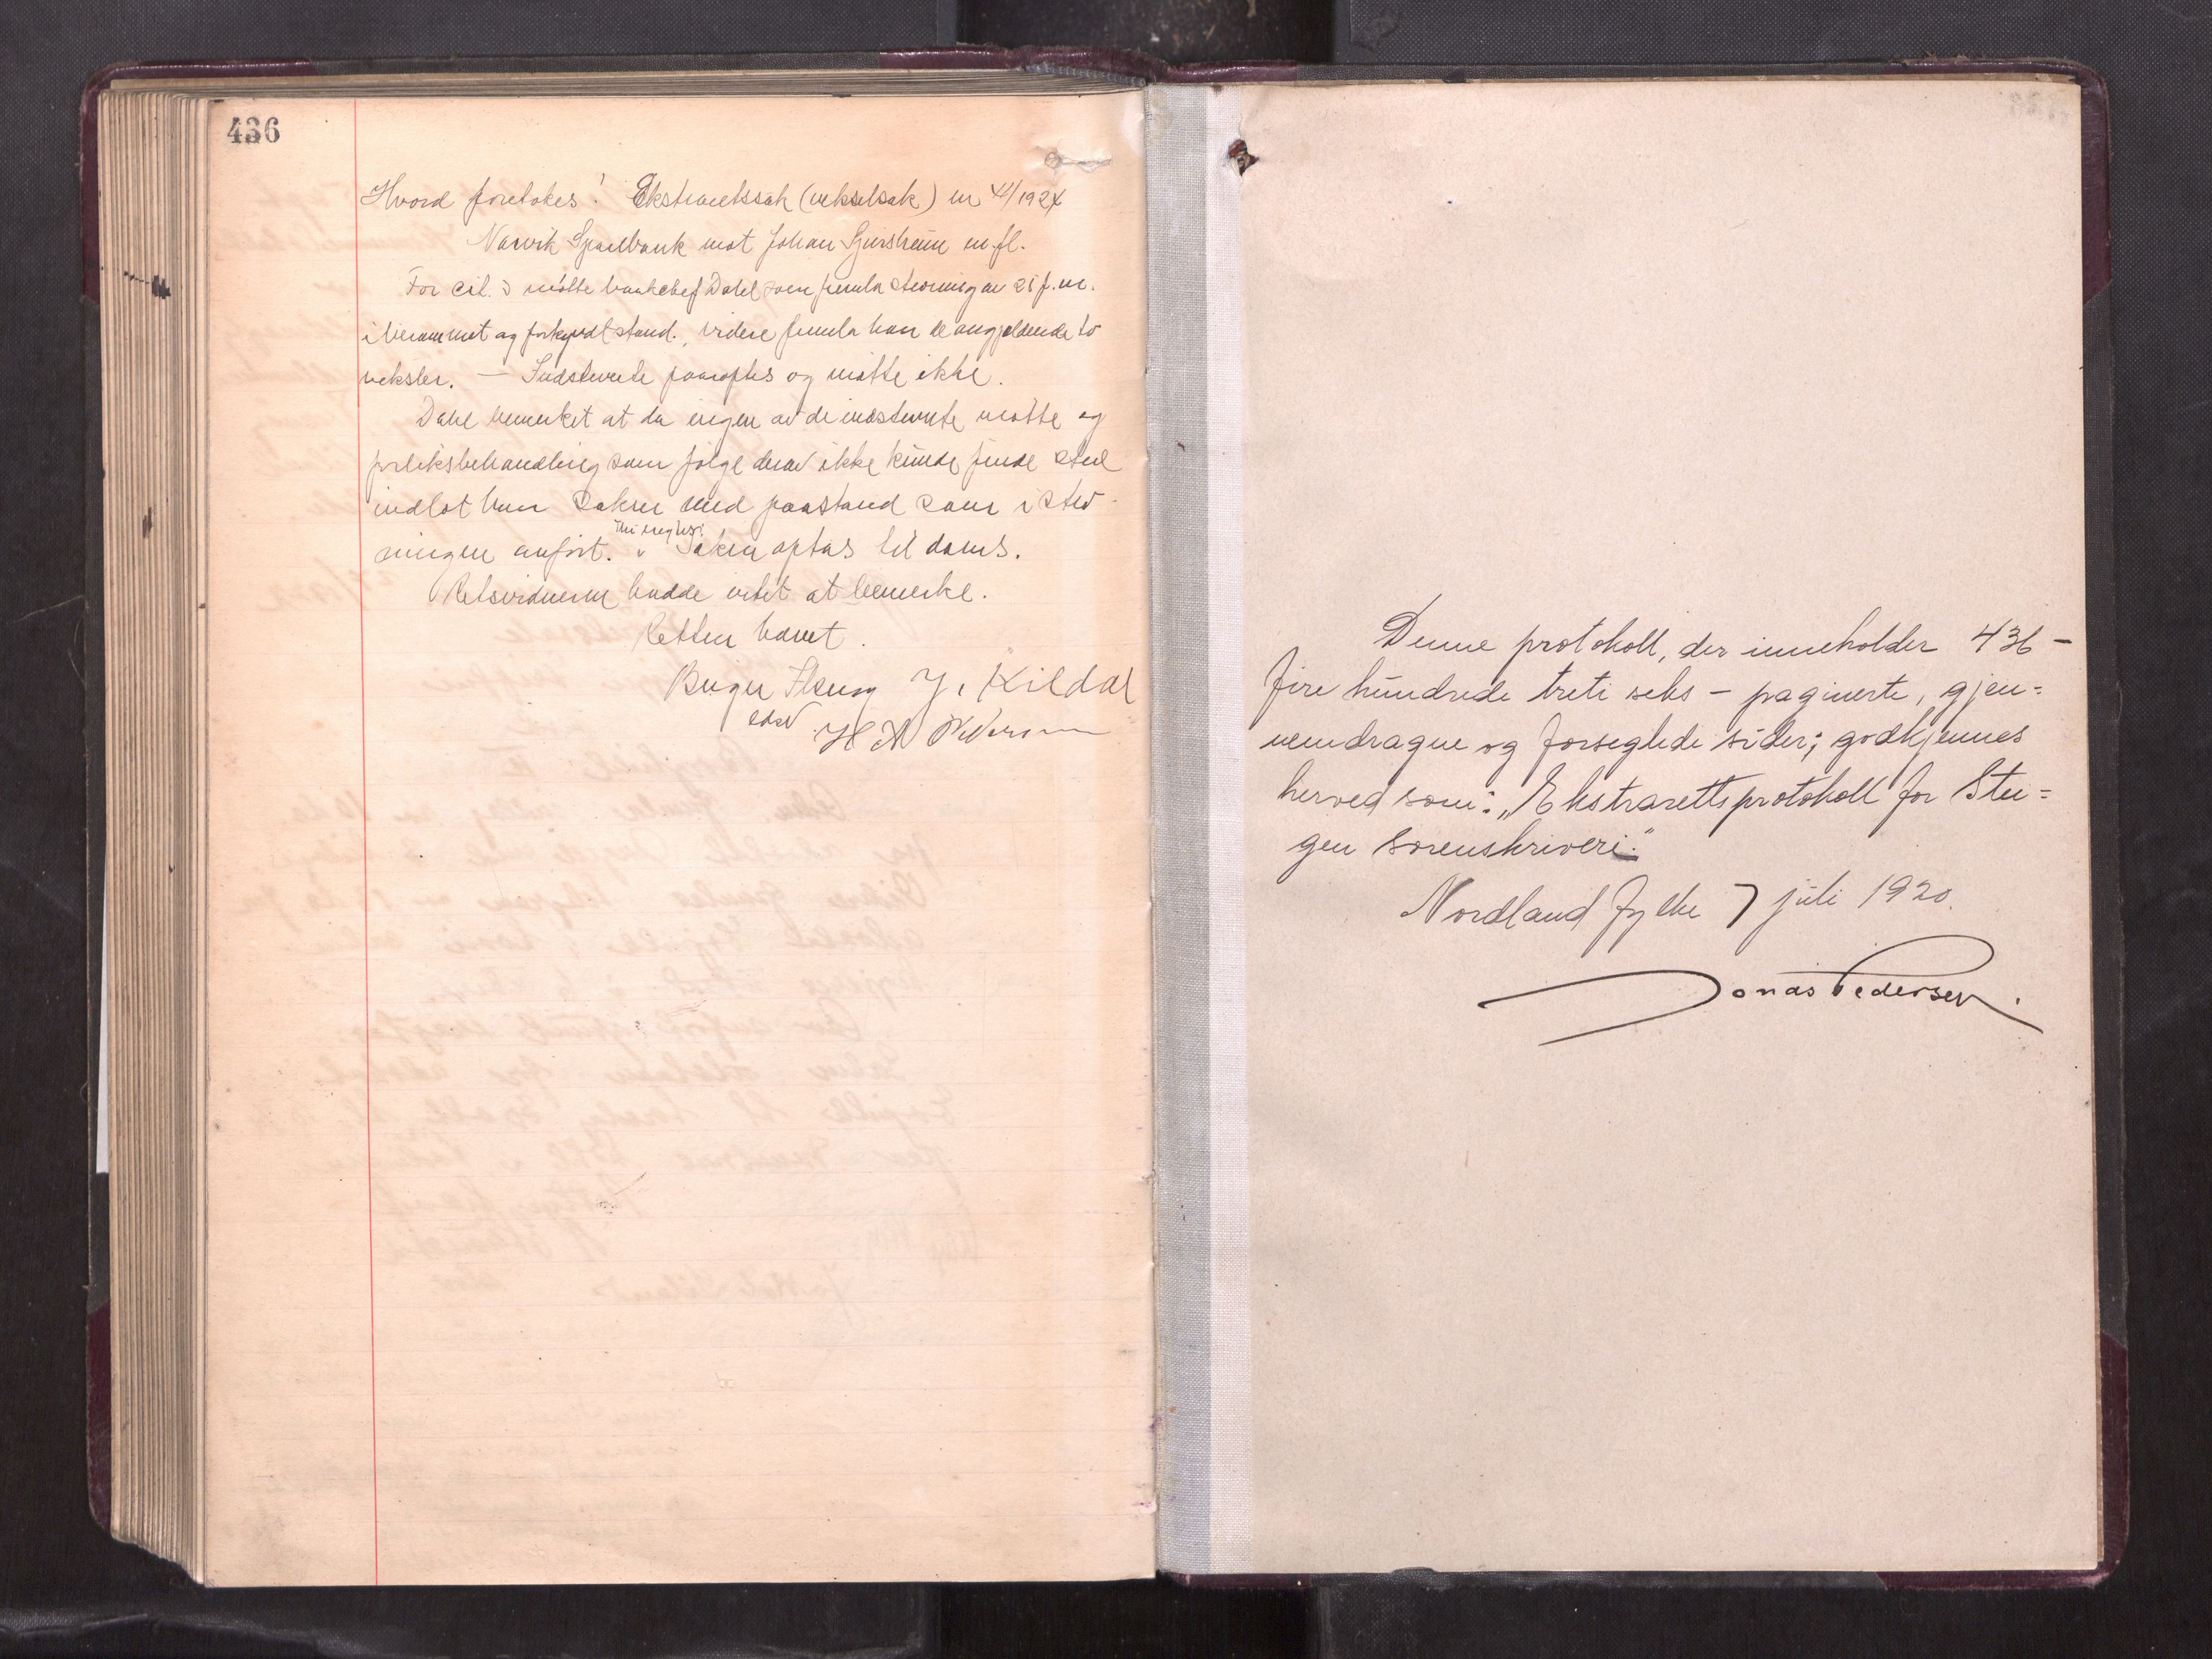 436
Hvord foretokes: Ekstraretssak (vekselsak) nr 41/1924
Narvik Sparebank mot Johan Gjersheim m. fl.
For cit. møtte bankchef Dahl som fremla stevning av 25 f.m.
i berammet og forkyndt stand., videre fremla han de angjeldende to
veksler. — Indstevnte paaroptes og møtte ikke.
Dahl bemerket at da ingen av de indstevnte møtte og
forliksbehandling som følge derav ikke kunde finde sted
indlot han saken med paastand som i stev-
ningen anført. Saken optas til doms.
Retsvidnerne hadde intet at bemerke.
Retten hævet.
Birger J. Kildal
edsv H A Pedersen
Denne protokoll, der inneholder 436 –
fire hundrede treti seks – paginerte, gjen=
nemdragne og forseglede sider; godkjennes
herved som: „Ekstrarettsprotokoll for Stei=
gen sorenskriveri."
Nordland fylke 7 juli 1920.
Jonas Pedersen.